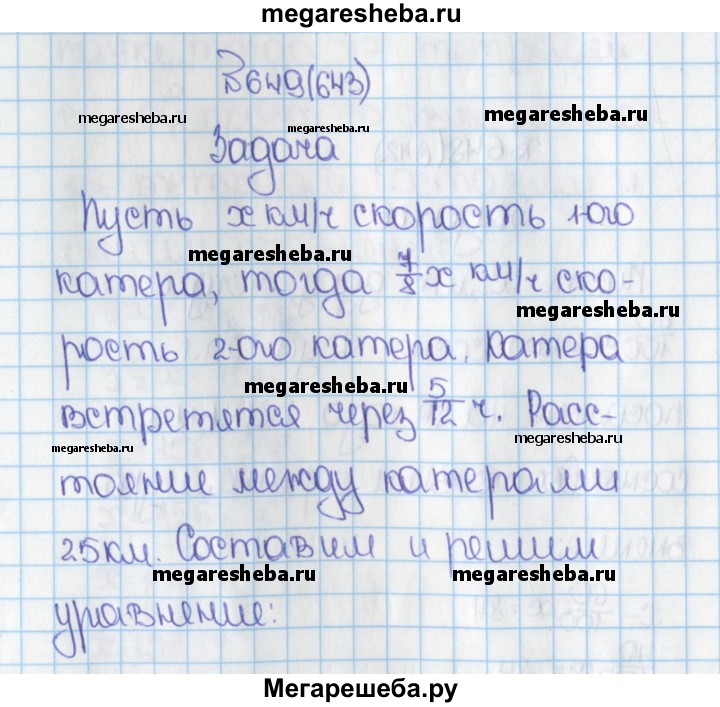 megaresheba.ru
№649(643)
megaresheba.ru
megaresheba.ru
megaresheba.ru
Задача
Пусть x км/ч скорость 1-ого
megaresheba.ru
катера, тогда 7/8 x км/ч ско-
megaresheba.ru
рость 2-ого катера. Катера
megaresheba.ru
встретятся через 5/12 ч. Расс-
megaresheba.ru
megaresheba.ru
тояние между катерами
25км. Составим и решим
megaresheba.ru
megaresheba.ru
уравнение:
Мегарешеба.ру